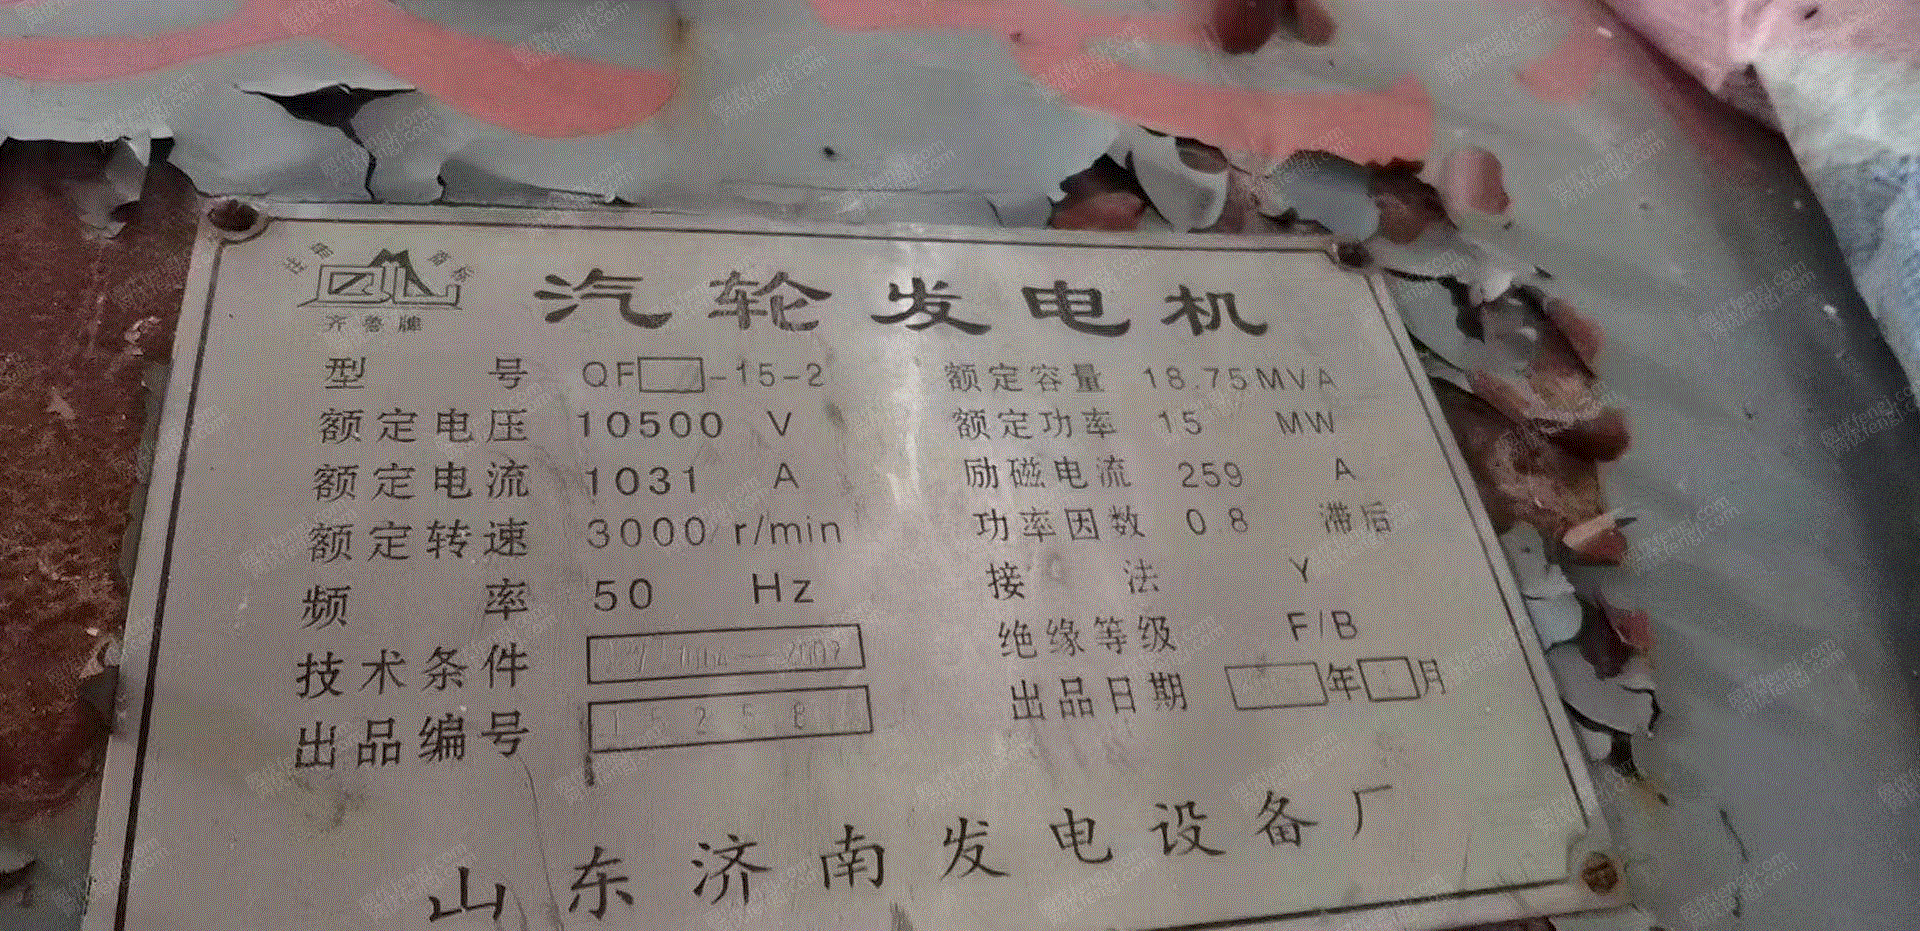 注册 商标
齐鲁牌
汽轮发电机
型号 QF -15-2
额定容量 18.75 MVA
额定电压 10500 V
额定功率 15 MW
额定电流 1031 A
励磁电流 259 A
额定转速 3000 r/min
功率因数 0.8 滞后
频率 50 Hz
接法 Y
绝缘等级 F/B
技术条件
出品编号 15258
出品日期 年 月
山东济南发电设备厂